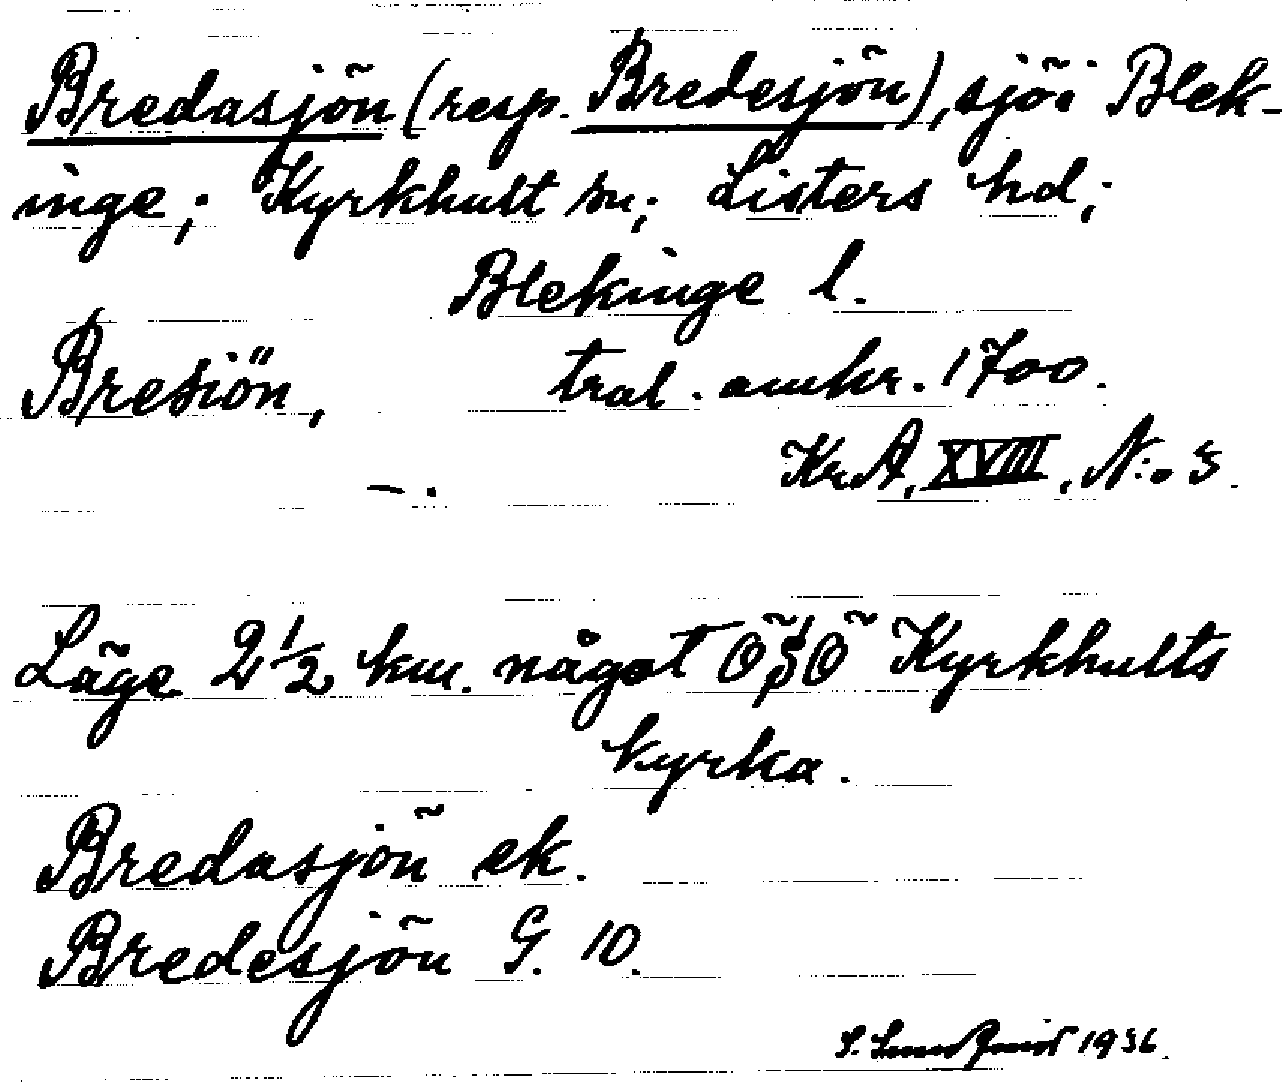 Bredasjön (resp. Bredesjön), sjö i Blek-
inge; Kyrkhult sn; Listers hd;
Blekinge l.
Bresiön, tral. omkr. 1700.
—. Kr.A, XVIII, N:o 3.
Läge 2 1/2 km. något ÖSÖ Kyrkhults
kyrka.
Bredasjön ek.
Bredesjön G. 10.
1936.